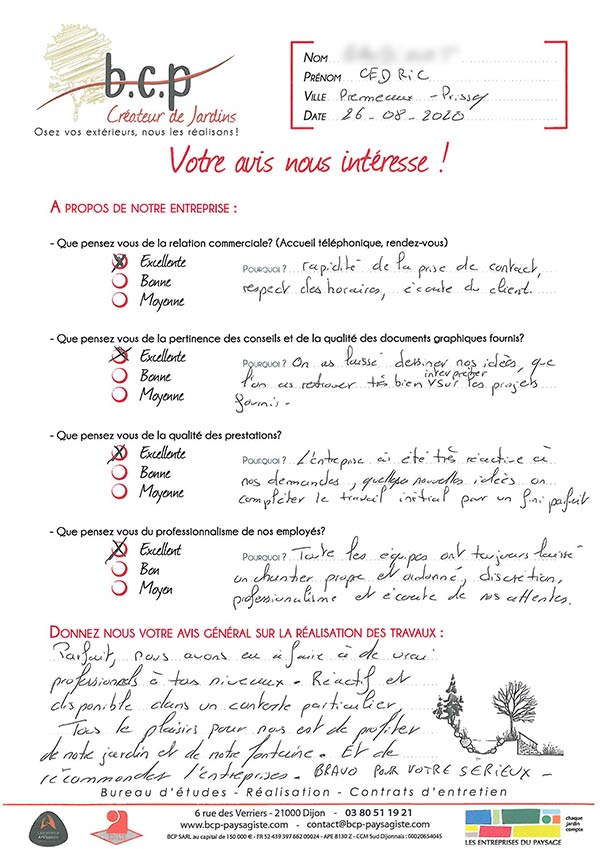 b.c.p
Créateur de Jardins
Osez vos extérieurs, nous les réalisons!
NOM
PRÉNOM CEDRIC
VILLE Premeaux - Prissey
DATE 26-08-2020
Votre avis nous intéresse !
A PROPOS DE NOTRE ENTREPRISE :
- Que pensez vous de la relation commerciale? (Accueil téléphonique, rendez-vous)
Excellente
Bonne
Moyenne
POURQUOI? rapidité de la prise de contact,
respect des horaires, écoute du client.
- Que pensez vous de la pertinence des conseils et de la qualité des documents graphiques fournis?
Excellente
Bonne
Moyenne
POURQUOI? On as laissé dessiner nos idées, que
l'on as retrouver très bien interpreter sur les projets
fournis.
- Que pensez vous de la qualité des prestations?
Excellente
Bonne
Moyenne
POURQUOI? L'entreprise à été très réactive à
nos demandes, quelques nouvelles idées on
compléter le travail initial pour un fini parfait
- Que pensez vous du professionnalisme de nos employés?
Excellent
Bon
Moyen
POURQUOI? Toute les équipes ont toujours laissé
un chantier propre et ordonné, discrétion,
professionalisme et écoute de nos attentes.
DONNEZ NOUS VOTRE AVIS GÉNÉRAL SUR LA RÉALISATION DES TRAVAUX :
Parfait, nous avons eu à faire à de vrai
professionnels à tous niveaux. Réactif et
disponible dans un contexte particulier,
Tous le plaisirs pour nous est de profiter
de notre jardin et de notre fontaine. Et de
récommander l'entreprises. BRAVO POUR VOTRE SÉRIEUX -
Bureau d'études - Réalisation - Contrats d'entretien
6 rue des Verriers - 21000 Dijon - 03 80 51 19 21
www.bcp-paysagiste.com - contact@bcp-paysagiste.com
BCP SARL au capital de 150 000 € - FR 52 439 397 662 00024 - APE 8130 Z - CCM Sud Dijonnais : 00020654045
LES ENTREPRISES DU PAYSAGE
chaque
jardin
compte